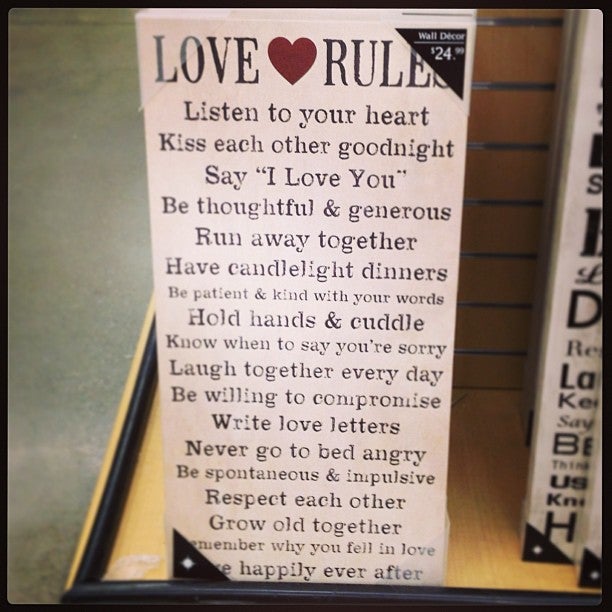 LOVE RULES
Wall Décor
$24.99
Listen to your heart
Kiss each other goodnight
Say "I Love You"
Be thoughtful & generous
Run away together
Have candlelight dinners
Be patient & kind with your words
Hold hands & cuddle
Know when to say you're sorry
Laugh together every day
Be willing to compromise
Write love letters
Never go to bed angry
Be spontaneous & impulsive
Respect each other
Grow old together
emember why you fell in love
e happily ever after
D
Re
La
Ke
Say
BE
Think
US
Kn
H